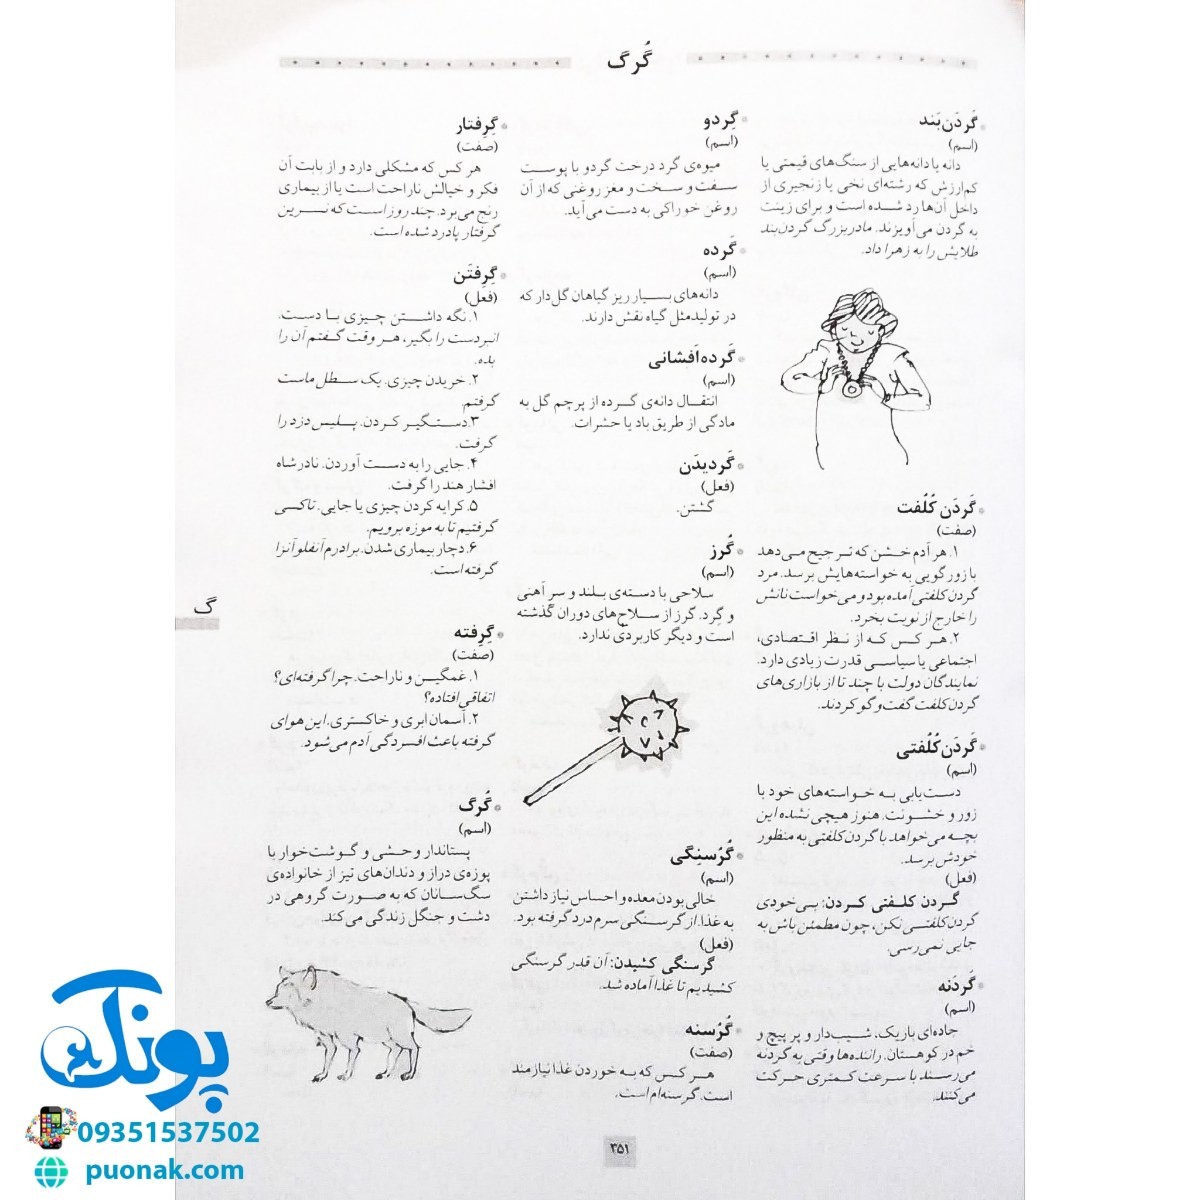 گُرگ
گَردَن‌بَند
(اسم)
دانه یا دانه‌هایی از سنگ‌های قیمتی یا
کم‌ارزش که رشته‌ای نخی یا زنجیری از
داخل آن‌ها رد شده است و برای زینت
به گردن می‌آویزند. مادربزرگ گردن‌بند
طلایش را به زهرا داد.
گَردَن کُلُفت
(صفت)
۱. هر آدم خشن که ترجیح می‌دهد
با زورگویی به خواسته‌هایش برسد. مرد
گردن‌کلفتی آمده بود و می‌خواست نانش
را خارج از نوبت بخرد.
۲. هر کس که از نظر اقتصادی،
اجتماعی یا سیاسی قدرت زیادی دارد.
نمایندگان دولت با چند تا از بازاری‌های
گردن‌کلفت گفت‌وگو کردند.
گَردَن‌کُلُفتی
(اسم)
دست‌یابی به خواسته‌های خود با
زور و خشونت. هنوز هیچی نشده این
بچه می‌خواهد با گردن‌کلفتی به منظور
خودش برسد.
(فعل)
گردن کلفتی کردن: بی‌خودی
گردن‌کلفتی نکن، چون مطمئن باش به
جایی نمی‌رسی.
گَردَنه
(اسم)
جاده‌ای باریک، شیب‌دار و پر پیچ و
خم در کوهستان. راننده‌ها وقتی به گردنه
می‌رسند با سرعت کمتری حرکت
می‌کنند.
گِردو
(اسم)
میوه‌ی گرد درخت گردو با پوست
سفت و سخت و مغز روغنی که از آن
روغن خوراکی به دست می‌آید.
گَرده
(اسم)
دانه‌های بسیار ریز گیاهان گل‌دار که
در تولیدمثل گیاه نقش دارند.
گَرده‌اَفشانی
(اسم)
انتقال دانه‌ی گرده از پرچم گل به
مادگی از طریق باد یا حشرات.
گَردیدَن
(فعل)
گشتن.
گُرز
(اسم)
سلاحی با دسته‌ی بلند و سر آهنی
و گِرد. گرز از سلاح‌های دوران گذشته
است و دیگر کاربردی ندارد.
گُرُسنِگی
(اسم)
خالی بودن معده و احساس نیاز داشتن
به غذا. از گرسنگی سرم درد گرفته بود.
(فعل)
گرسنگی کشیدن: آن قدر گرسنگی
کشیدیم تا غذا آماده شد.
گُرُسنه
(صفت)
هر کس که به خوردن غذا نیازمند
است. گرسنه‌ام است.
گِرِفتار
(صفت)
هر کس که مشکلی دارد و از بابت آن
فکر و خیالش ناراحت است یا از بیماری
رنج می‌برد. چند روز است که نسرین
گرفتار پادرد شده است.
گِرِفتَن
(فعل)
۱. نگه داشتن چیزی با دست.
انبردست را بگیر، هر وقت گفتم آن را
بده.
۲. خریدن چیزی. یک سطل ماست
گرفتم.
۳. دستگیر کردن. پلیس دزد را
گرفت.
۴. جایی را به دست آوردن. نادرشاه
افشار هند را گرفت.
۵. کرایه کردن چیزی یا جایی. تاکسی
گرفتیم تا به موزه برویم.
۶. دچار بیماری شدن. برادرم آنفلوآنزا
گرفته است.
گِرِفته
(صفت)
۱. غمگین و ناراحت. چرا گرفته‌ای؟
اتفاقی افتاده؟
۲. آسمان ابری و خاکستری. این هوای
گرفته باعث افسردگی آدم می‌شود.
گُرگ
(اسم)
پستاندار وحشی و گوشت‌خوار با
پوزه‌ی دراز و دندان‌های تیز از خانواده‌ی
سگ‌سانان که به صورت گروهی در
دشت و جنگل زندگی می‌کند.
گ
۳۵۱
پونک
09351537502
puonak.com